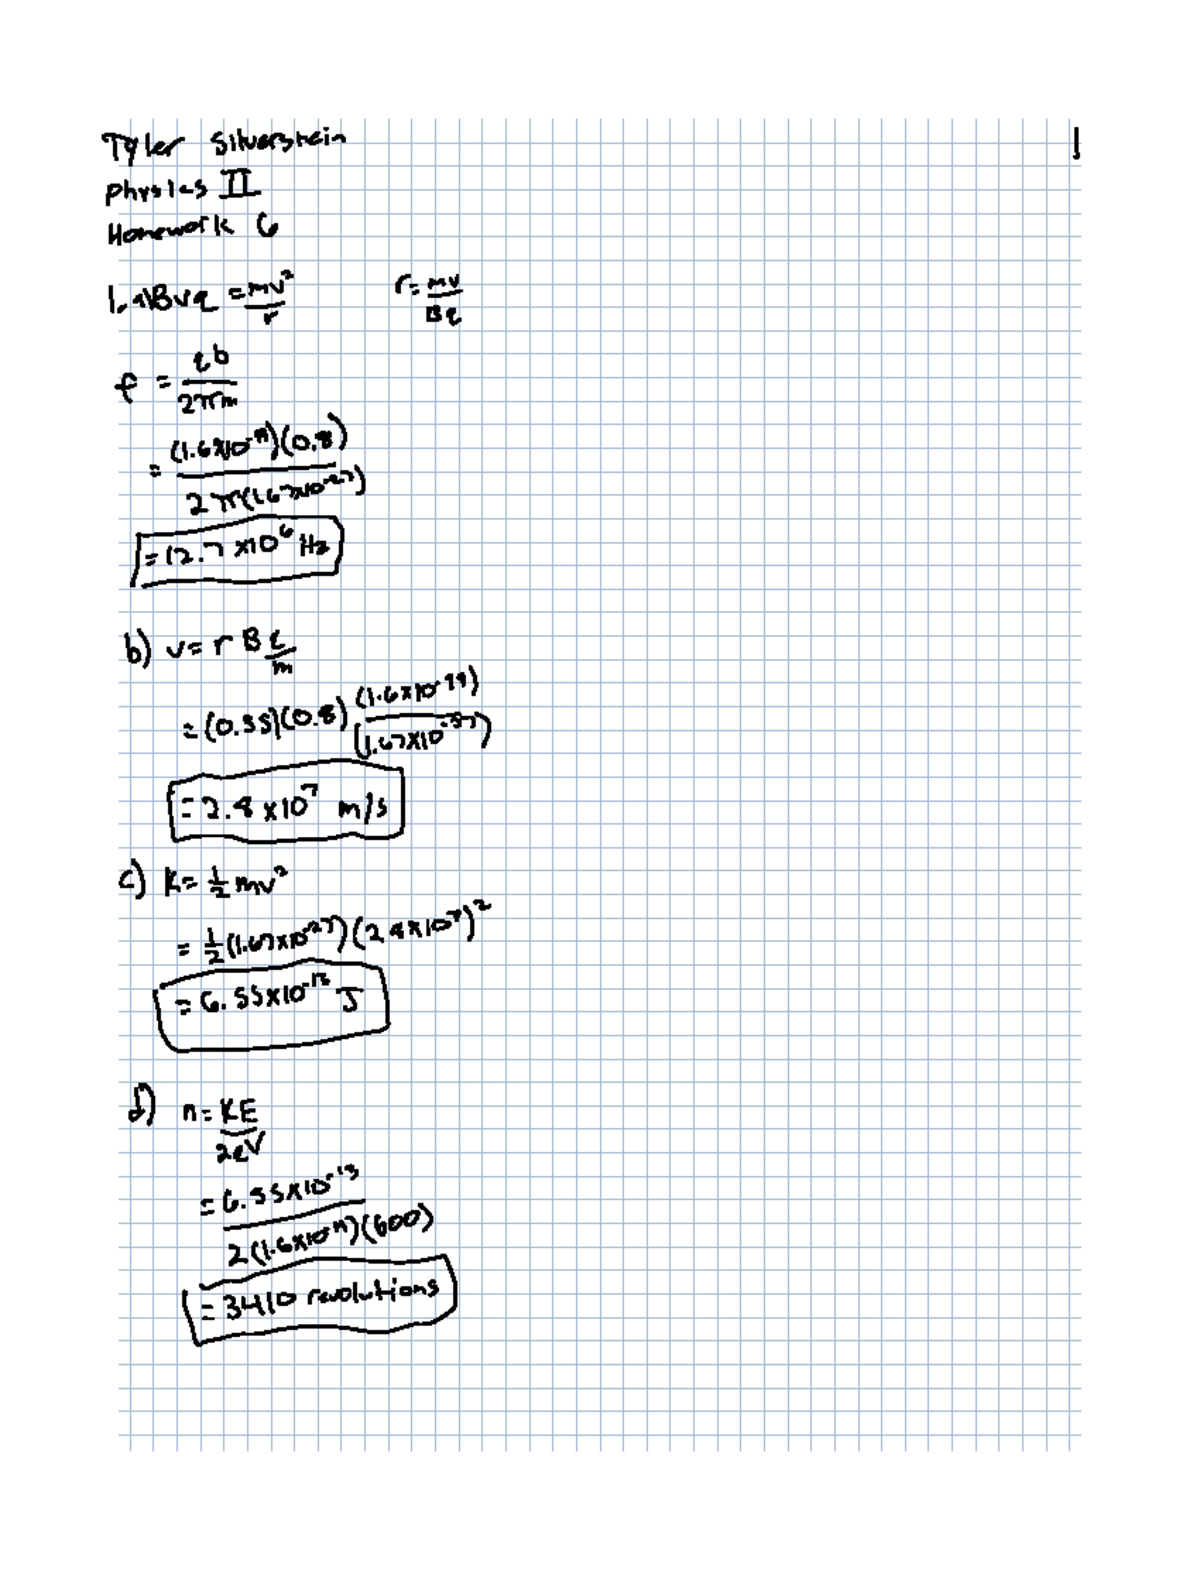 Tyler Silverstein
1
Physics II
Homework 6
1. a) Bvq = mv²/r r = mv/Bq
f = qb/2πm
= (1.6x10⁻¹⁹)(0.8)/2π(1.67x10⁻²⁷)
= 12.7 x10⁶ Hz
b) v = r B q/m
= (0.35)(0.8) (1.6x10⁻¹⁹)/(1.67x10⁻²⁷)
= 2.8 x10⁷ m/s
c) K = 1/2 mv²
= 1/2 (1.67x10⁻²⁷)(2.8x10⁷)²
= 6.55x10⁻¹³ J
d) n = KE/2eV
= 6.55x10⁻¹³/2(1.6x10⁻¹⁹)(600)
= 3410 revolutions